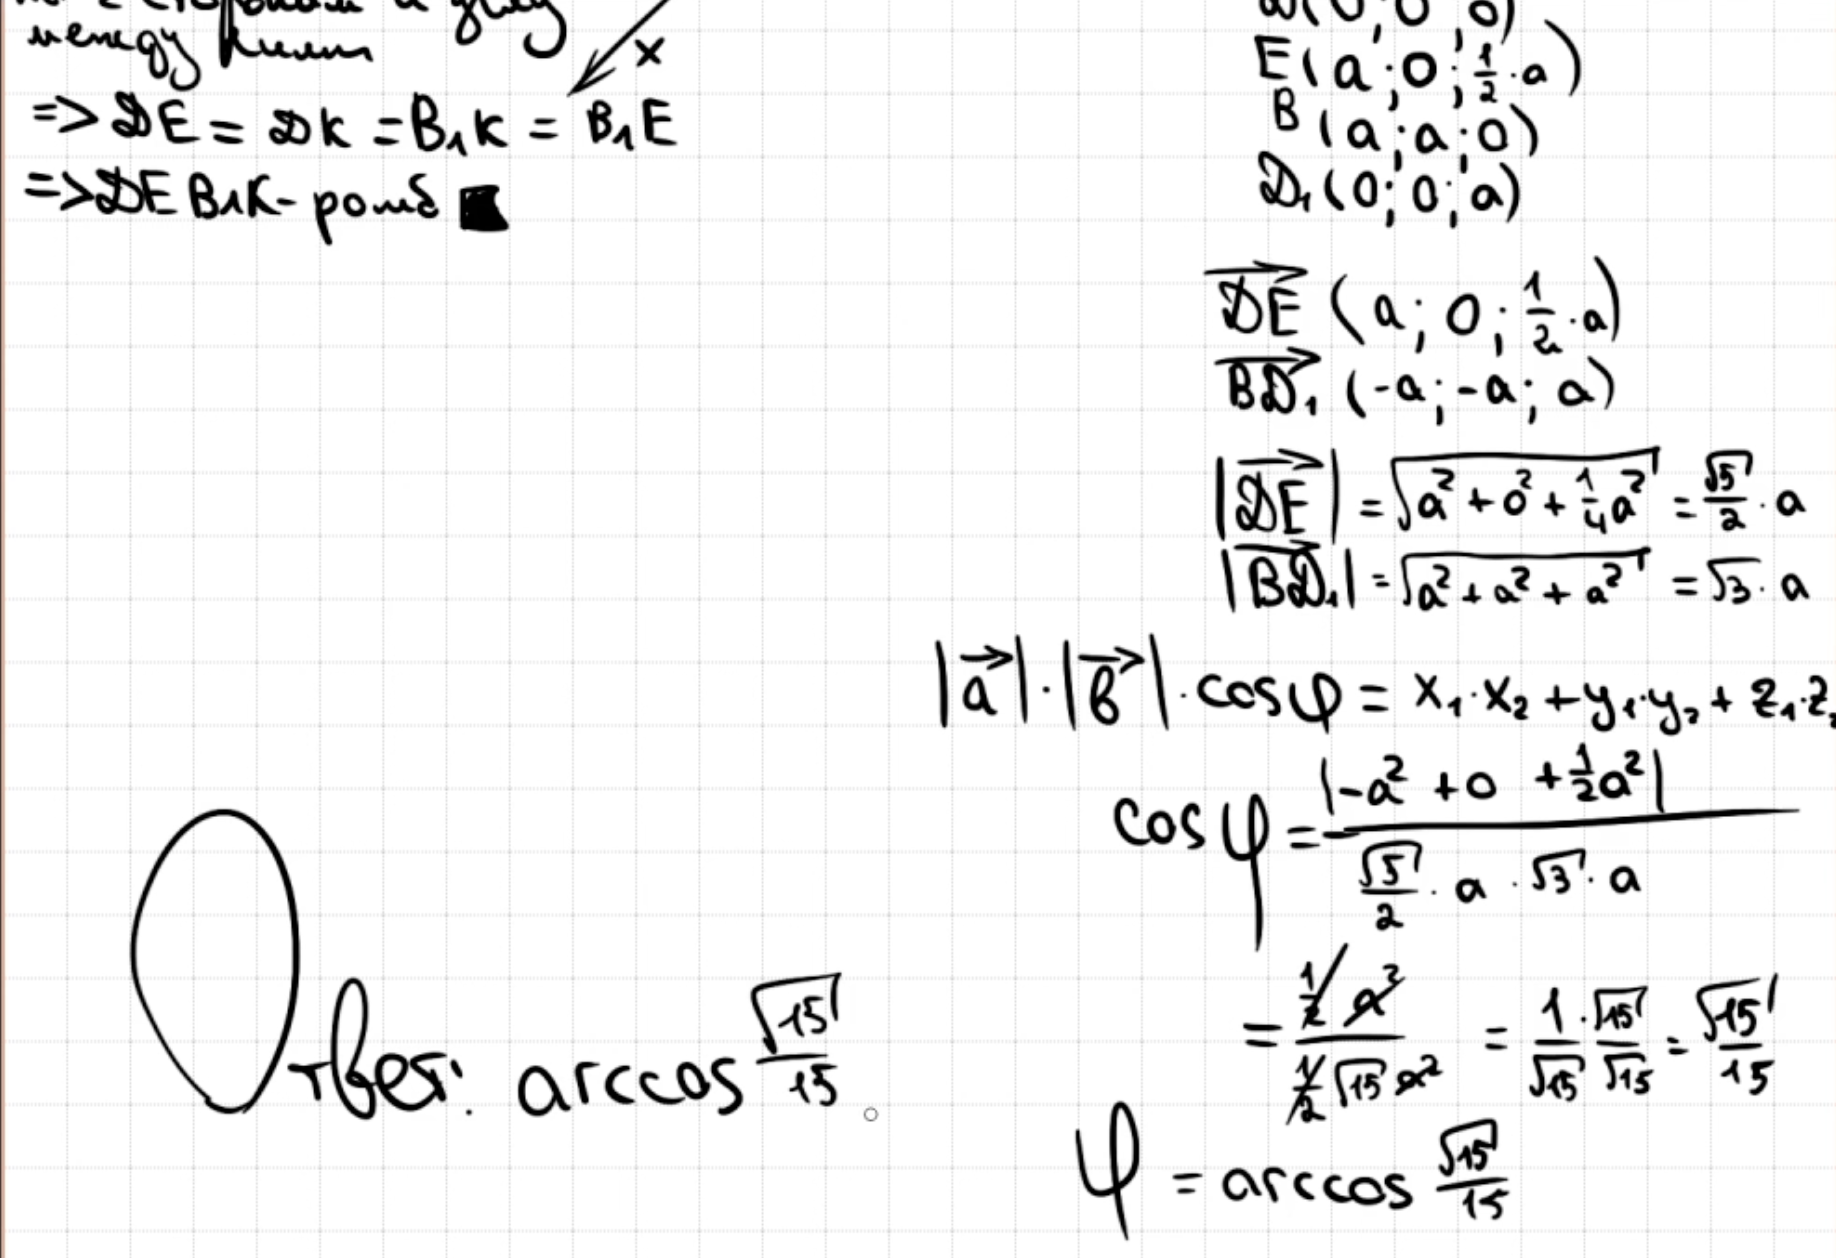 между ними
x
=> DE = DK = B₁K = B₁E
=> DEB₁K - ромб ■
D(0; 0; 0)
E(a; 0; 1/2·a)
B(a; a; 0)
D₁(0; 0; a)
DE→ (a; 0; 1/2·a)
BD₁→ (-a; -a; a)
|DE→| = √(a² + 0² + 1/4a²) = √5/2 · a
|BD₁→| = √(a² + a² + a²) = √3 · a
|a→| · |b→| · cos φ = x₁·x₂ + y₁·y₂ + z₁·z₂
cos φ = |-a² + 0 + 1/2a²| / (√5/2 · a · √3 · a)
= (1/2 a²) / (1/2 √15 a²) = 1/√15 · √15/√15 = √15/15
φ = arccos √15/15
Ответ: arccos √15/15